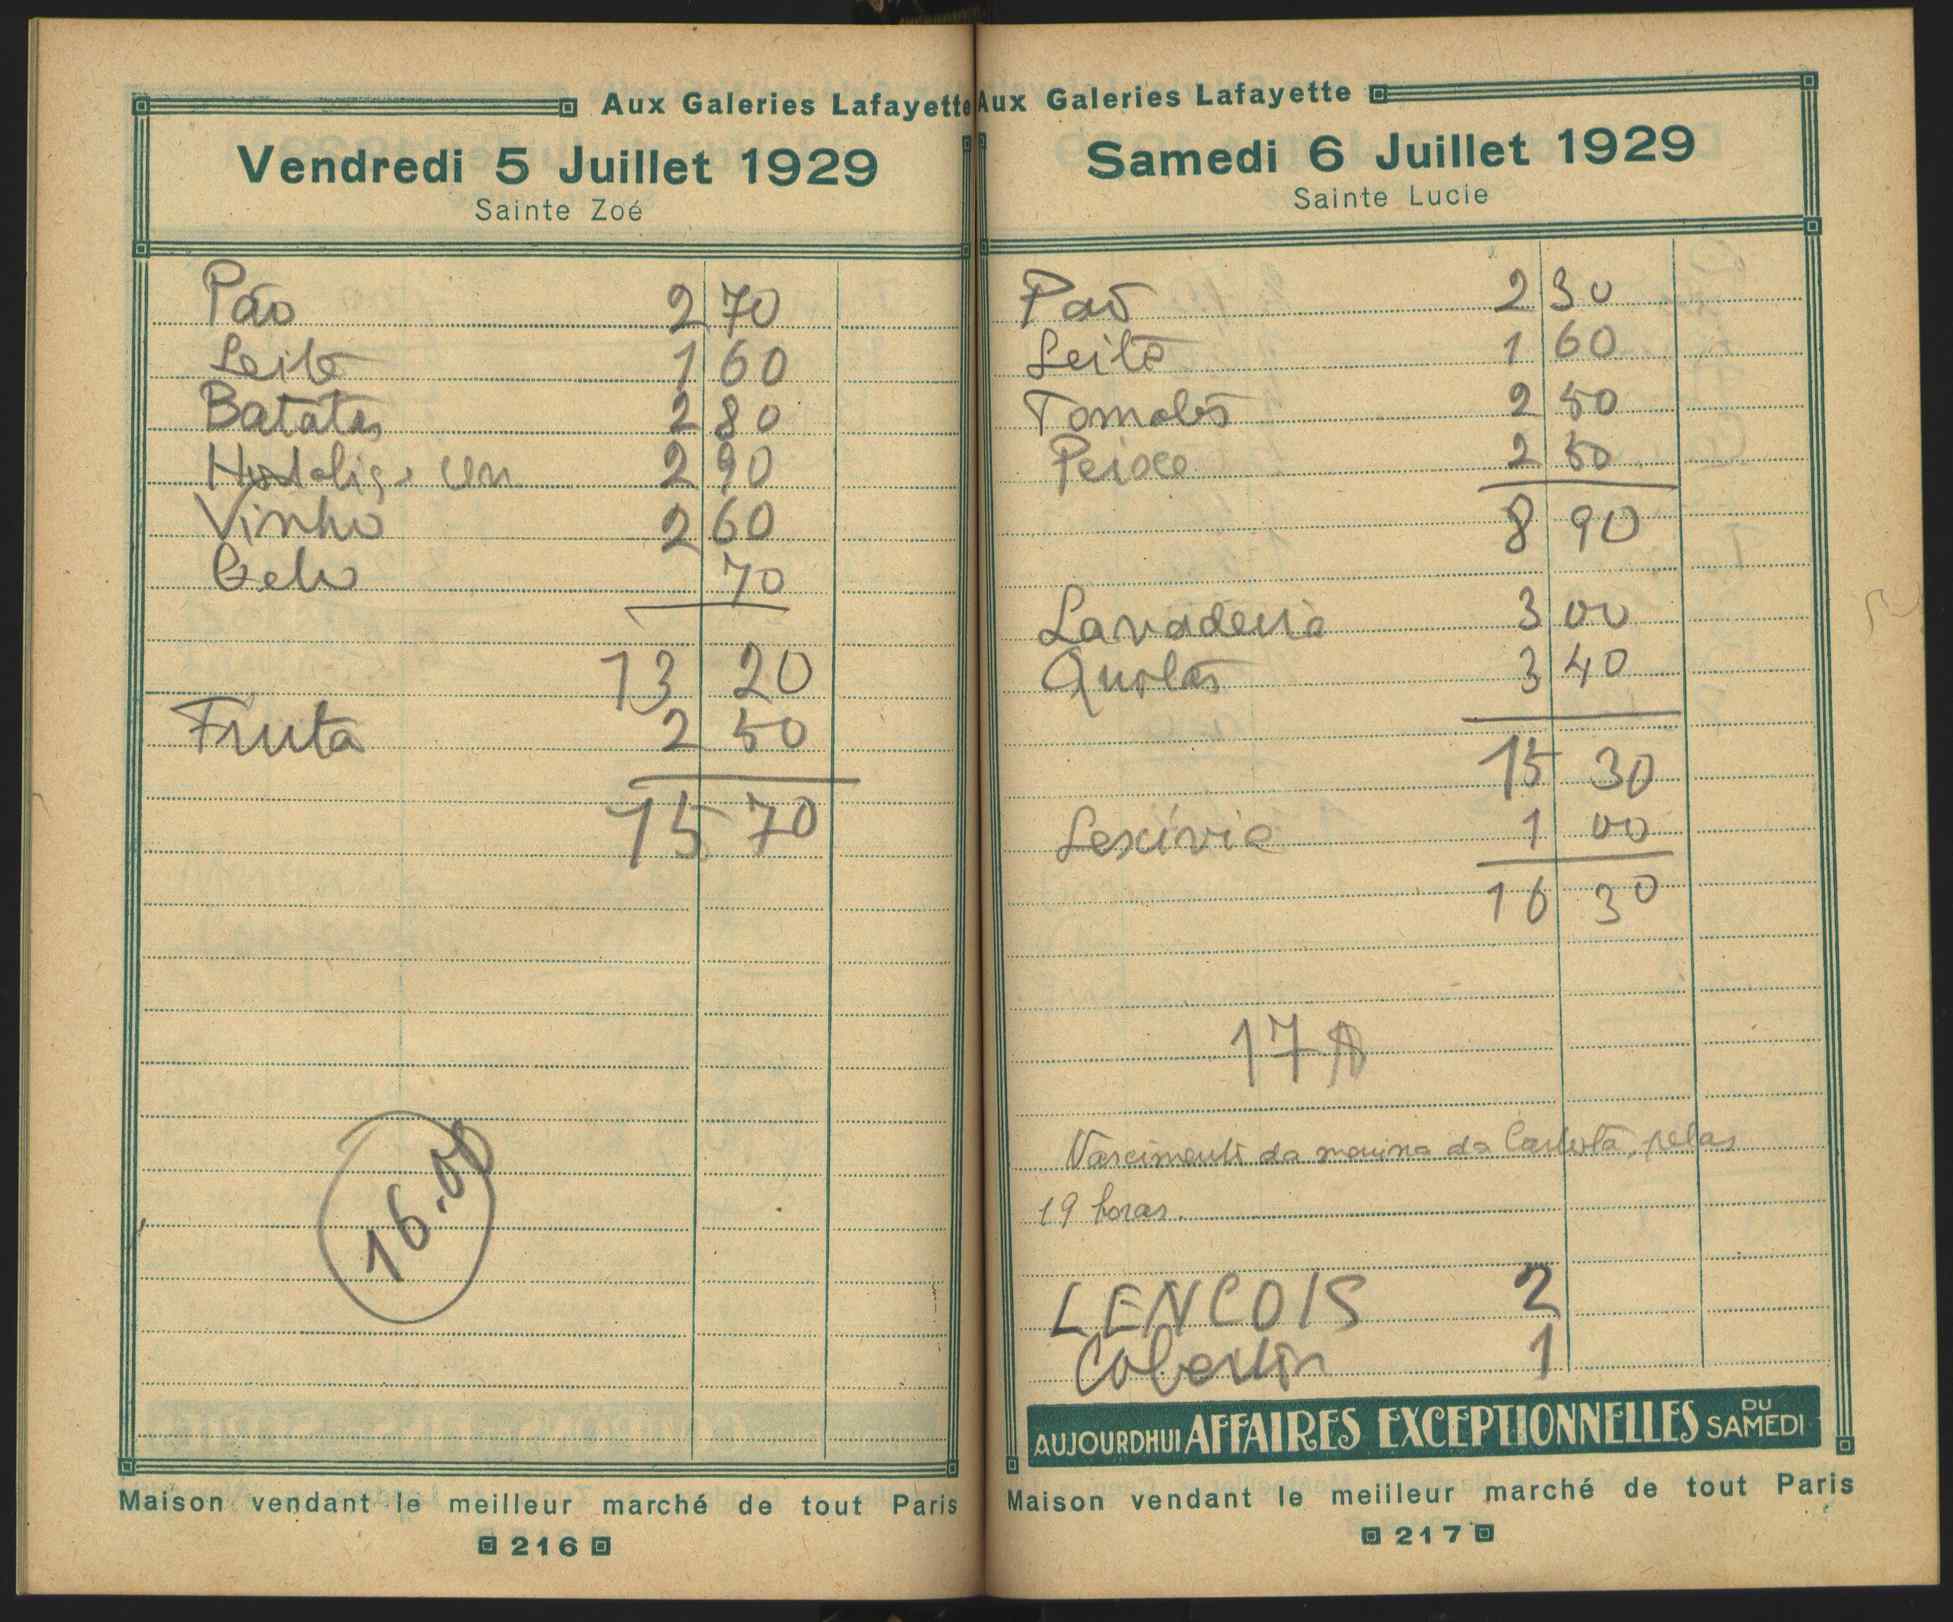 Aux Galeries Lafayette
Vendredi 5 Juillet 1929
Sainte Zoé
Pão 2 70
Leite 1 60
Batatas 2 80
Hortaliça 2 90
Vinho 2 60
Gelo 70
13 20
Fruta 2 50
15 70
16.00
Maison vendant le meilleur marché de tout Paris
216
Aux Galeries Lafayette
Samedi 6 Juillet 1929
Sainte Lucie
Pão 2 30
Leite 1 60
Tomates 2 50
Peixe 2 50
8 90
Lavadeira 3 00
3 40
15 30
Lexívia 1 00
16 30
17
Nascimento da menina da Carlota, pelas
19 horas.
LENCOIS 2
1
AUJOURDHUI AFFAIRES EXCEPTIONNELLES DU SAMEDI
Maison vendant le meilleur marché de tout Paris
217